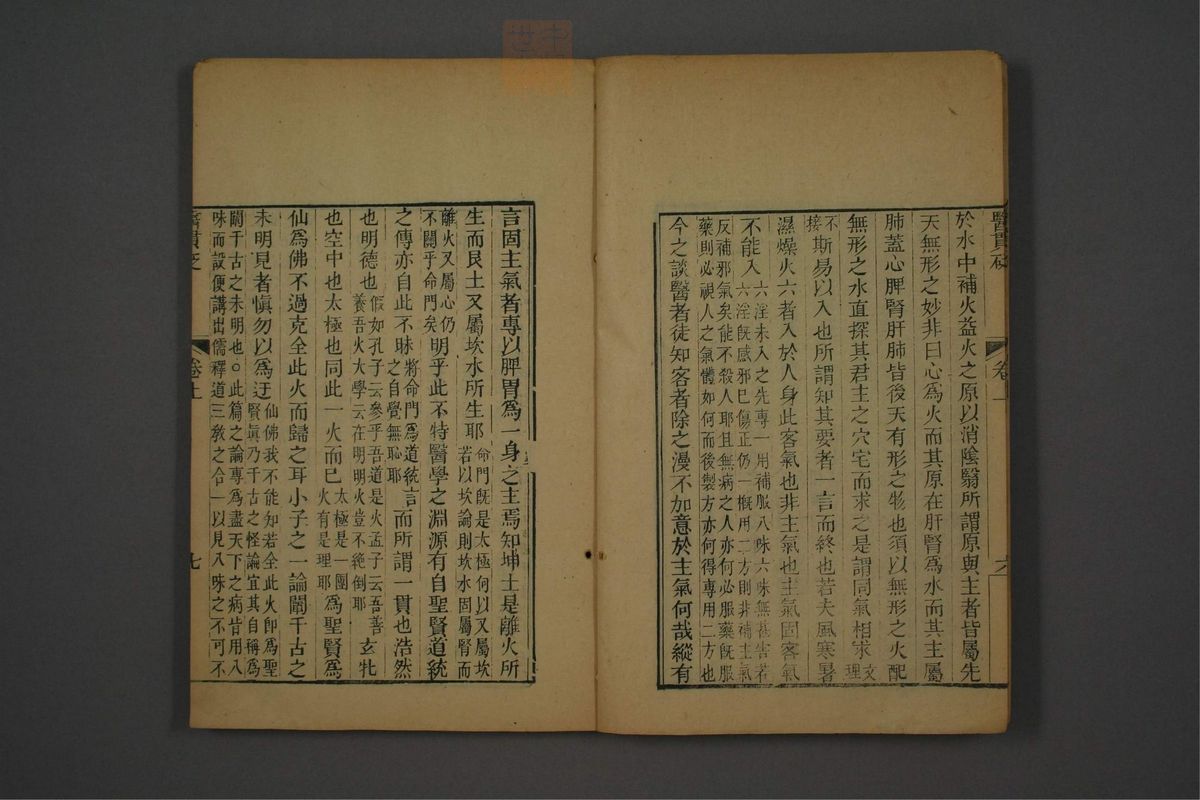 於水中補火益火之原以消陰翳所謂原與主者皆屬先
天無形之妙非曰心為火而其原在肝腎為水而其主屬
肺蓋心脾腎肝肺皆後天有形之物也須以無形之火配
無形之水直探其君主之穴宅而求之是謂同氣相求文理
不接斯易以入也所謂知其要者一言而終也若夫風寒暑
濕燥火六者入於人身此客氣也非主氣也主氣固客氣
不能入六淫未入之先專一用補服八味六味無甚害若
六淫既感邪已傷正仍一概用二方則非補主氣
反補邪氣矣能不殺人耶且無病之人亦何必服藥既服
藥則必視人之氣體如何而後製方亦何得專用二方也
今之談醫者徒知客者除之漫不加意於主氣何哉縱有
醫貫砭
卷上
言固主氣者專以脾胃為一身之主焉知坤土是離火所
生而艮土又屬坎水所生耶命門既是太極何以又屬坎
若以坎論則坎水固屬腎而
離火又屬心仍
不關乎命門矣明乎此不特醫學之淵源有自聖賢道統
之傳亦自此不昧將命門為道統言
之自覺無恥耶而所謂一貫也浩然
也明德也假如孔子云參乎吾道是火孟子云吾善
養吾火大學云在明明火豈不絕倒耶玄牝
也空中也太極也同此一火而已太極是一團
火有是理耶為聖賢為
仙為佛不過克全此火而歸之耳小子之一論闡千古之
未明見者慎勿以為迂仙佛我不能知若全此火即為聖
賢真乃千古之怪論宜其自稱為
闢千古之未明也○此篇之論專為盡天下之病皆用八
味而設便講出儒釋道三教之合一以見八味之不可不
醫貫砭
卷上
七